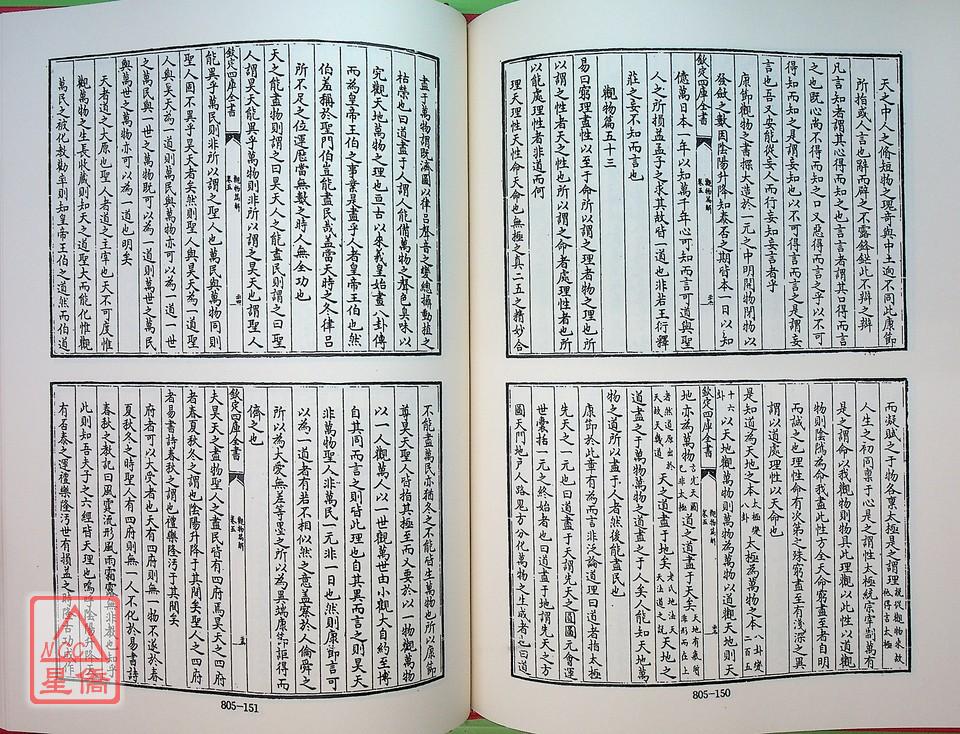 天之中人之脩短物之瓌奇與中土迥不同此康節
所指或人言也辭而辟之不露鋒此不辨之辨
凡言知者謂其心得而知之也言言者謂其口得而言
之也既心尚不得而知之口又惡得而言之乎以不可
得知而知之是謂妄知也以不可得言而言之是謂妄
言也吾又安能從妄人而行妄知妄言者乎
康節觀物之書探大造於一元之中明開物閉物以
發斂之數因陰陽升降知泰否之期時本一日以知
欽定四庫全書
觀物篇解
卷五
億萬日本一年以知萬千年心可知而言可道與聖
人之所損益孟子之求其故皆一道也非若王衍釋
莊之妄不知而言也
觀物篇五十三
易曰窮理盡性以至于命所以謂之理者物之理也所
以謂之性者天之性也所以謂之命者處理性者也所
以能處理性者非道而何
理天理性天性命天命也無極之真二五之精妙合
而凝賦之于物各禀太極是之謂理
人生之初同禀于心是之謂性太極統宗宰制萬有
是之謂命以我觀物則物具此理觀以此性以道觀
物則陰隲為命我盡此性方全天命窮盡至者自明
而誠之也理性命有次第之殊窮盡至有淺深之異
謂以道處理性以天命也
是知道為天地之本天地為萬物之本
以天地觀萬物則萬物為萬物以道觀天地則天
欽定四庫全書
觀物篇解
卷五
地亦為萬物道之道盡于天矣
天之道盡于地矣天地之
道盡于萬物矣天地萬
物之道所以盡于人者然後能盡民也
康節於此章有為而言非泛論道理曰道者指太極
先天之一也曰道盡于天謂先天之圓圖元會運
世囊括一元之終始者也曰道盡于地謂先天之方
圖天門地戶人路鬼方分化萬物之生成者也曰道
805-150
盡于萬物謂既濟圖以律呂聲音之變總攝動植之
枯榮也曰道盡于人謂人能備萬物之聲色臭味以
究觀天地萬物之理也亘古以來羲皇始畫八卦傳
而為皇帝王伯之事業是盡乎人者皇帝王伯也然
伯羞稱於聖門伯豈能盡民哉蓋當天時之冬律呂
所不足之位運厯當無數之時人無全功也
天之能盡物則謂之曰昊天人之能盡民則謂之曰聖
人謂昊天能異乎萬物則非所以謂之昊天也謂聖人
欽定四庫全書
觀物篇解
卷五
能異乎萬民則非所以謂之聖人也萬民與萬物同則
聖人固不異乎昊天者矣然則聖人與昊天為一道聖
人與昊天為一道則萬民與萬物亦可以為一道一世
之萬民與一世之萬物既可以為一道則萬世之萬民
與萬世之萬物亦可以為一道也明矣
天者道之太原也聖人者道之主宰也天不可度惟
觀萬物之生長收藏則知天之道聖大而能化惟觀
萬民之被化教勸率則知皇帝王伯之道然而伯道
不能盡萬民亦猶冬之不能皆生萬物也所以康節
尊昊天聖人皆指其極至而又要於以一物觀萬物
以一人觀萬人以一世觀萬世由小觀大自約至博
自其同而言之則皆此理也自其異而言之則昊天
非萬物聖人非萬民一元非一日也然則康節言可
以為一道者有若不相似然之意蓋察於人倫舜之
所以為大愛無差等墨之所以為異端康節詎得而
儕之也
欽定四庫全書
觀物篇解
卷五
夫昊天之盡物聖人之盡民皆有四府焉昊天之四府
者春夏秋冬之謂也陰陽升降于其間矣聖人之四府
者易書詩春秋之謂也禮樂隆汙于其間矣
府者可以大受者也天有四府則無一物不遂於春
夏秋冬之時聖人有四府則無一人不化於易書詩
春秋之教記曰風霆流形風雨霜露無非教也知乎
此則知吾夫子之六經皆天理也嗚呼陰陽升降天
有否泰之運禮樂隆汙世有損益之時
805-151
星僑